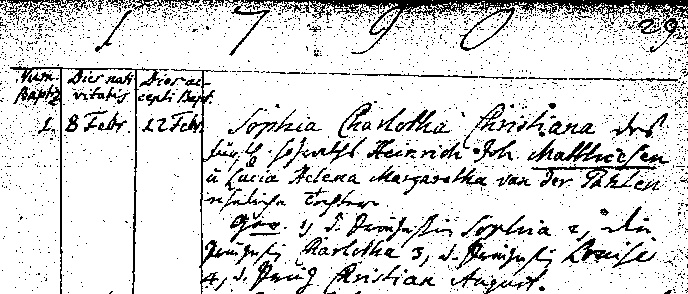 1 7 9 0 29
Num. Dies nati- Dies ac-
Baptiz vitatis cepti Bapt.
1. 8 Febr. 12 Febr. Sophia Charlotha Christiana des
Heinrich Joh. Matthiesen
u Lucia Helena Margaretha von der Pahlen
eheliche Tochter
Gev. 1, d. Prinzessin Sophia 2, die
Prinzessin Charlotha 3, d. Prinzessin Louise
4, d. Prinz Christian August.